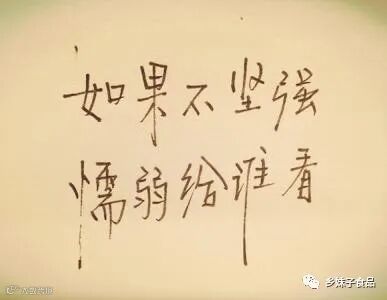 如果不坚强
懦弱给谁看
乡妹子食品